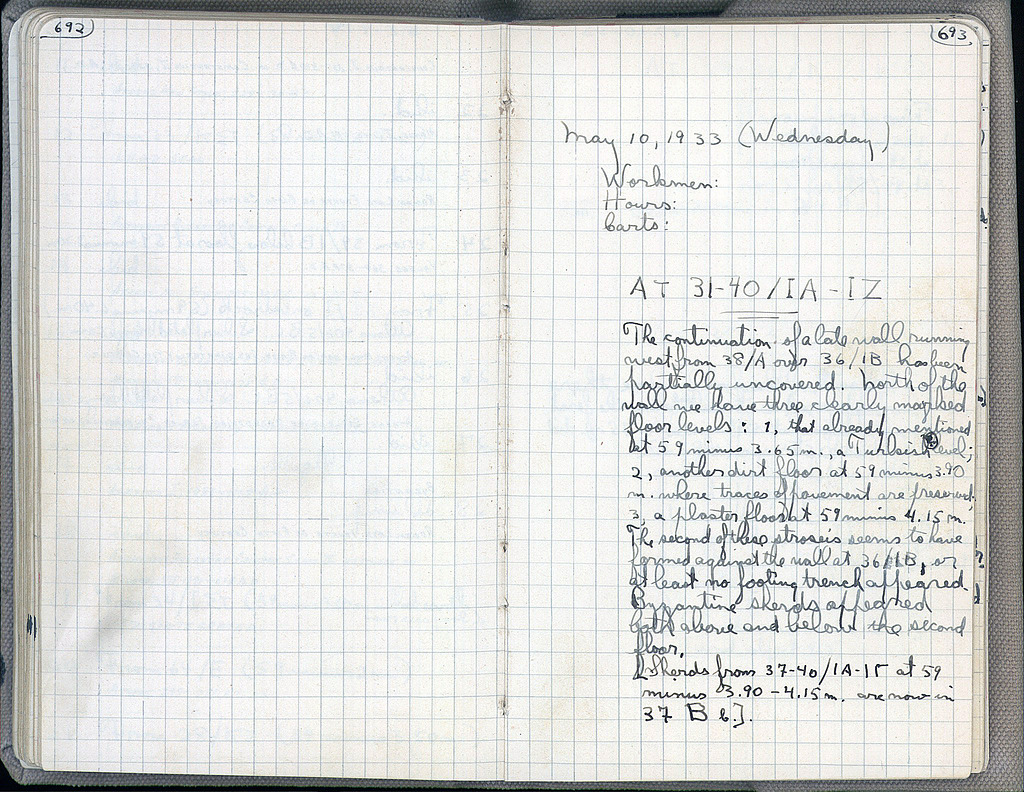 692
693
May 10, 1933 (Wednesday)
Workmen:
Hours:
Carts:
AT 31-40/IA-IZ
The continuation of a late wall running
west from 38/A over 36/IB has been
partially uncovered. North of the
wall we have three clearly marked
floor levels: 1, that already mentioned
at 59 minus 3.65 m., a Turkish level;
2, another dirt floor at 59 minus 3.90
m. where traces of pavement are preserved;
3, a plaster floor at 59 minus 4.15 m.
The second of these stroseis seems to have
formed against the wall at 36/IB, or
at least no footing trench appeared.
Byzantine sherds appeared
both above and below the second
floor.
[Sherds from 37-40/IA-IΓ at 59
minus 3.90-4.15 m. are now in
37 B b.].